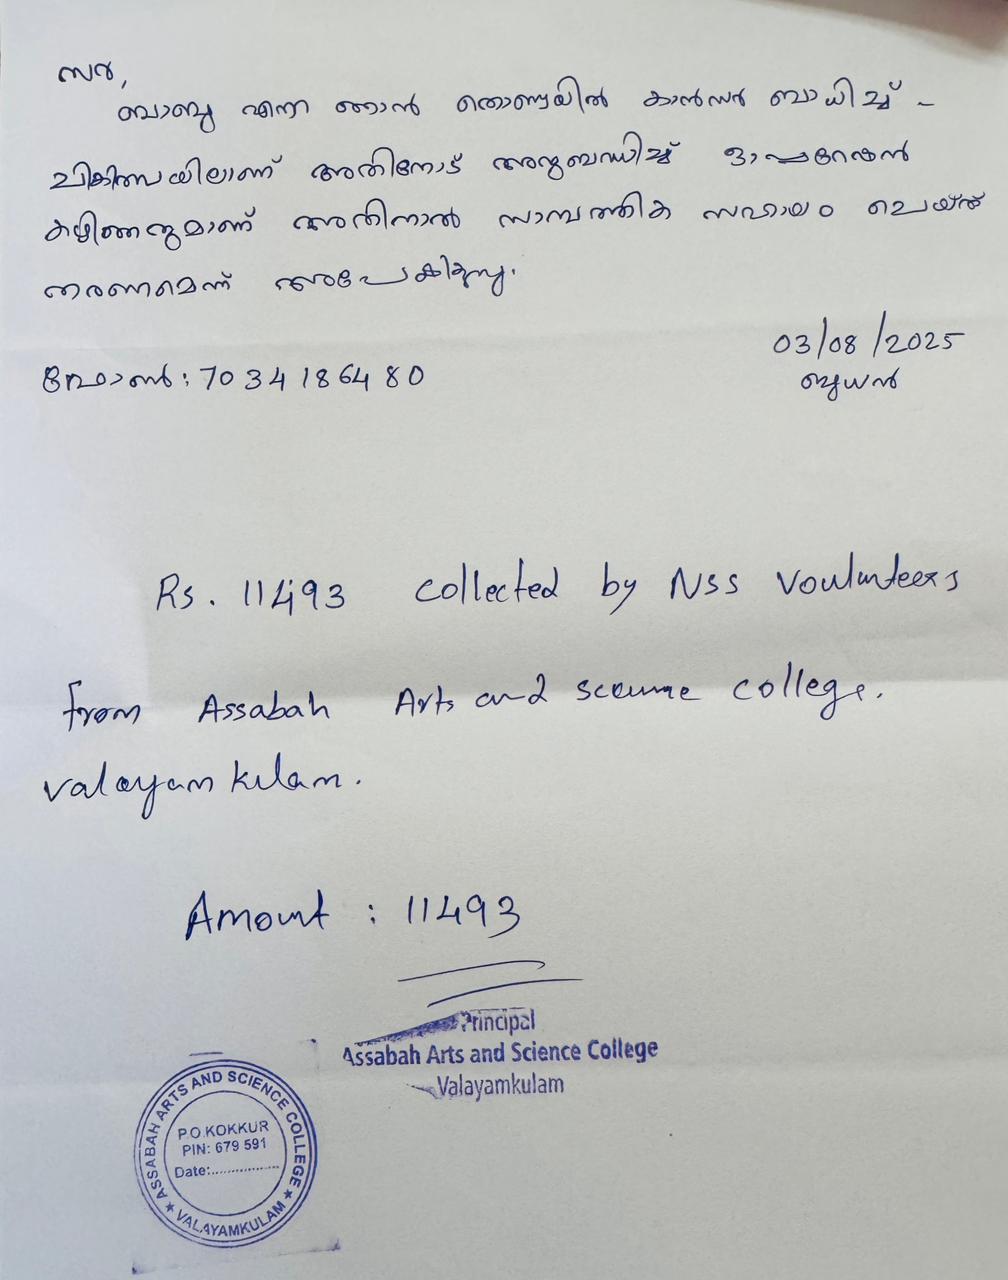 സർ,
ബാബു എന്ന ഞാൻ തൊണ്ടയിൽ കാൻസർ ബാധിച്ച് -
ചികിത്സയിലാണ് അതിനോട് അനുബന്ധിച്ച് ഓപ്പറേഷൻ
കഴിഞ്ഞതുമാണ് അതിനാൽ സാമ്പത്തിക സഹായം ചെയ്ത്
തരണമെന്ന് അപേക്ഷിക്കുന്നു.
03/08/2025
ഫോൺ: 7034186480
ബുധൻ
Rs. 11493 collected by NSS Voulunteers
from Assabah Arts and science college.
valayamkulam.
Amount : 11493
Principal
Assabah Arts and Science College
Valayamkulam
ASSABAH ARTS AND SCIENCE COLLEGE
P.O.KOKKUR
PIN: 679 591
Date:..................
★ VALAYAMKULAM ★